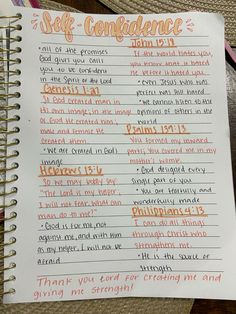 Self-Confidence
• all of the promises
God gives you calls
you to be confident
in the Spirit of the Lord
Genesis 1:27
So God created man in
His own image, in the image
of God He created him;
male and female He
created them.
• We are created in God's
image
Hebrews 13:6
So we may boldly say:
"The Lord is my helper;
I will not fear. What can
man do to me?"
• God is for me, not
against me, and with Him
as my helper, I will not be
afraid
John 15:18
If the world hates you,
you know that it hated
me before it hated you.
• even Jesus who was
perfect was still hated
• we cannot listen to the
opinions of others in the
world
Psalms 139:13
You formed my inward
parts; You covered me in my
mother's womb.
• God designed every
single part of you
• You are fearfully and
wonderfully made
Philippians 4:13
I can do all things
through Christ who
strengthens me.
• He is the source of
strength
Thank you Lord for creating me and
giving me strength!